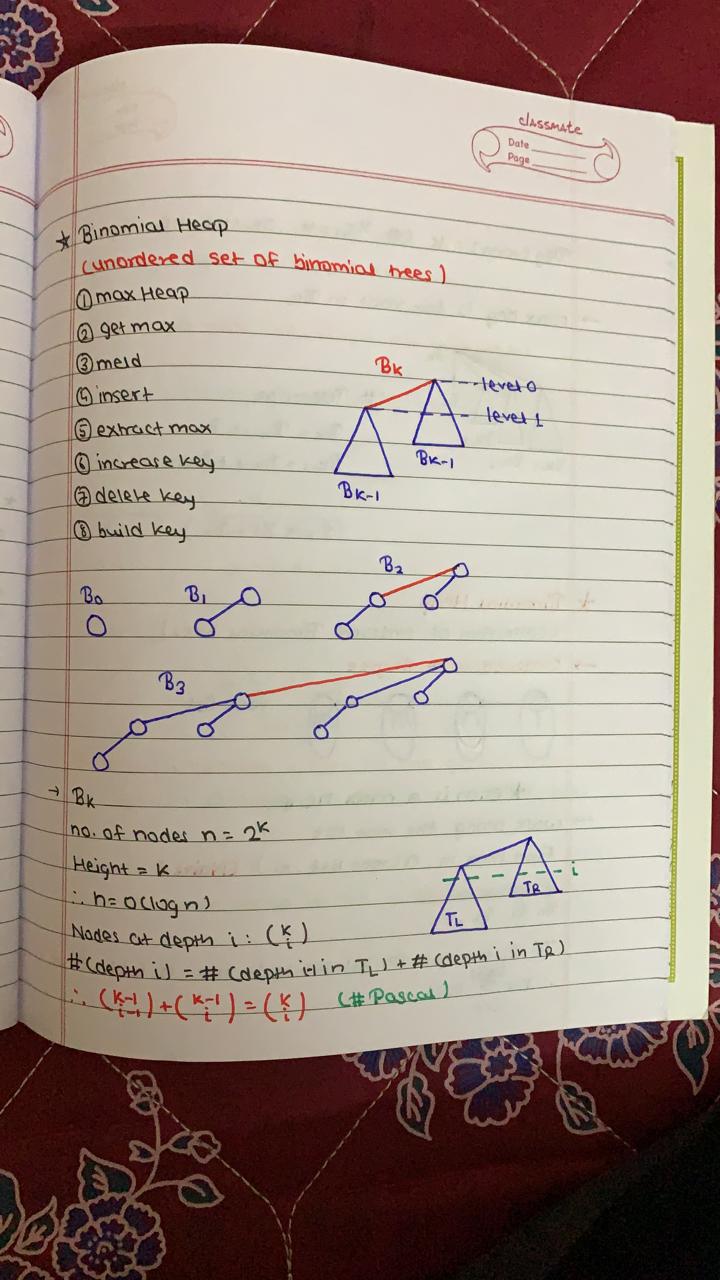 classmate
Date
Page
★ Binomial Heap
(unordered set of binomial trees)
① max Heap
② get max
③ meld
④ insert
⑤ extract max
⑥ increase key
⑦ delete key
⑧ build key
Bk
level 0
level 1
Bk-1
Bk-1
B0
B1
B2
B3
→ Bk
no. of nodes n = 2^k
Height = k
∴ h = O(log n)
Nodes at depth i : (k i)
#(depth i) = # (depth i-1 in TL) + # (depth i in TR)
∴ (k-1 i-1) + (k-1 i) = (k i) (# Pascal)
i
TR
TL